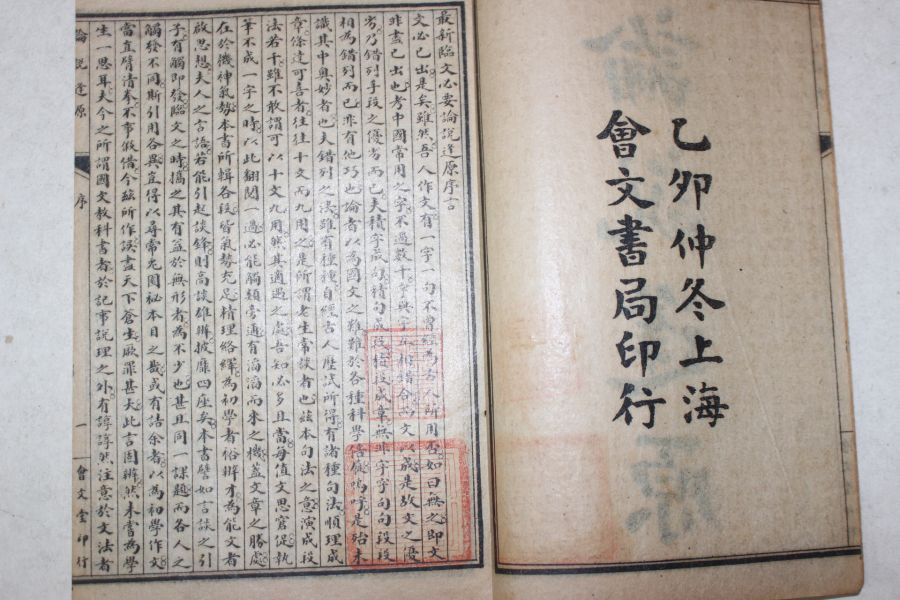 乙卯仲冬上海
會文書局印行
最新臨文必要論說逢原序言
文必已出是矣雖然吾人作文有一字一句不曾經為古人所用否如曰無之即文
非盡已出也考中國常用之字不過數千
劣乃錯列手段之優劣而已夫積字成句積句成段積段成章無非字字句句段段
相為錯列而已非有他巧也論者以為國文之難難於各種科學倍蓰嗚呼是殆未
識其中奧妙者也夫錯列之法雖有種種自經古人歷試所得有諸種句法順理成
章條達可喜者往往十文而九用之是所謂老生常談者也茲本句法之意演成段
法若干雖不敢謂可以十文九用然其適遇之處吾知必多且當每值文思窘促執
筆不成一字之時以此翻閱一過必能觸類旁通有滔滔而來之機蓋文章之勝處
在於機神氣勢本書所輯各段皆氣勢充足精理絡繹為初學者俗辨才為能文者
啟思想夫人之言語若能引起談鋒則高談雄辨披靡四座矣本書譬如言談之引
子有觸即發臨文之時摛之其有益於無形者為不少也甚且同一課題而各人之
觸發不同斯引用各異宜得以尋常光閱祕本目之哉或有詰余者以為初學作文
當直臂清拳不事假借今茲所作誤盡天下蒼生厥罪甚大此言固辨然未嘗為學
生一思耳夫今之所謂國文教科書者於記事說理之外有諄諄然注意於文法者
論說逢原
序
一
會文堂印行